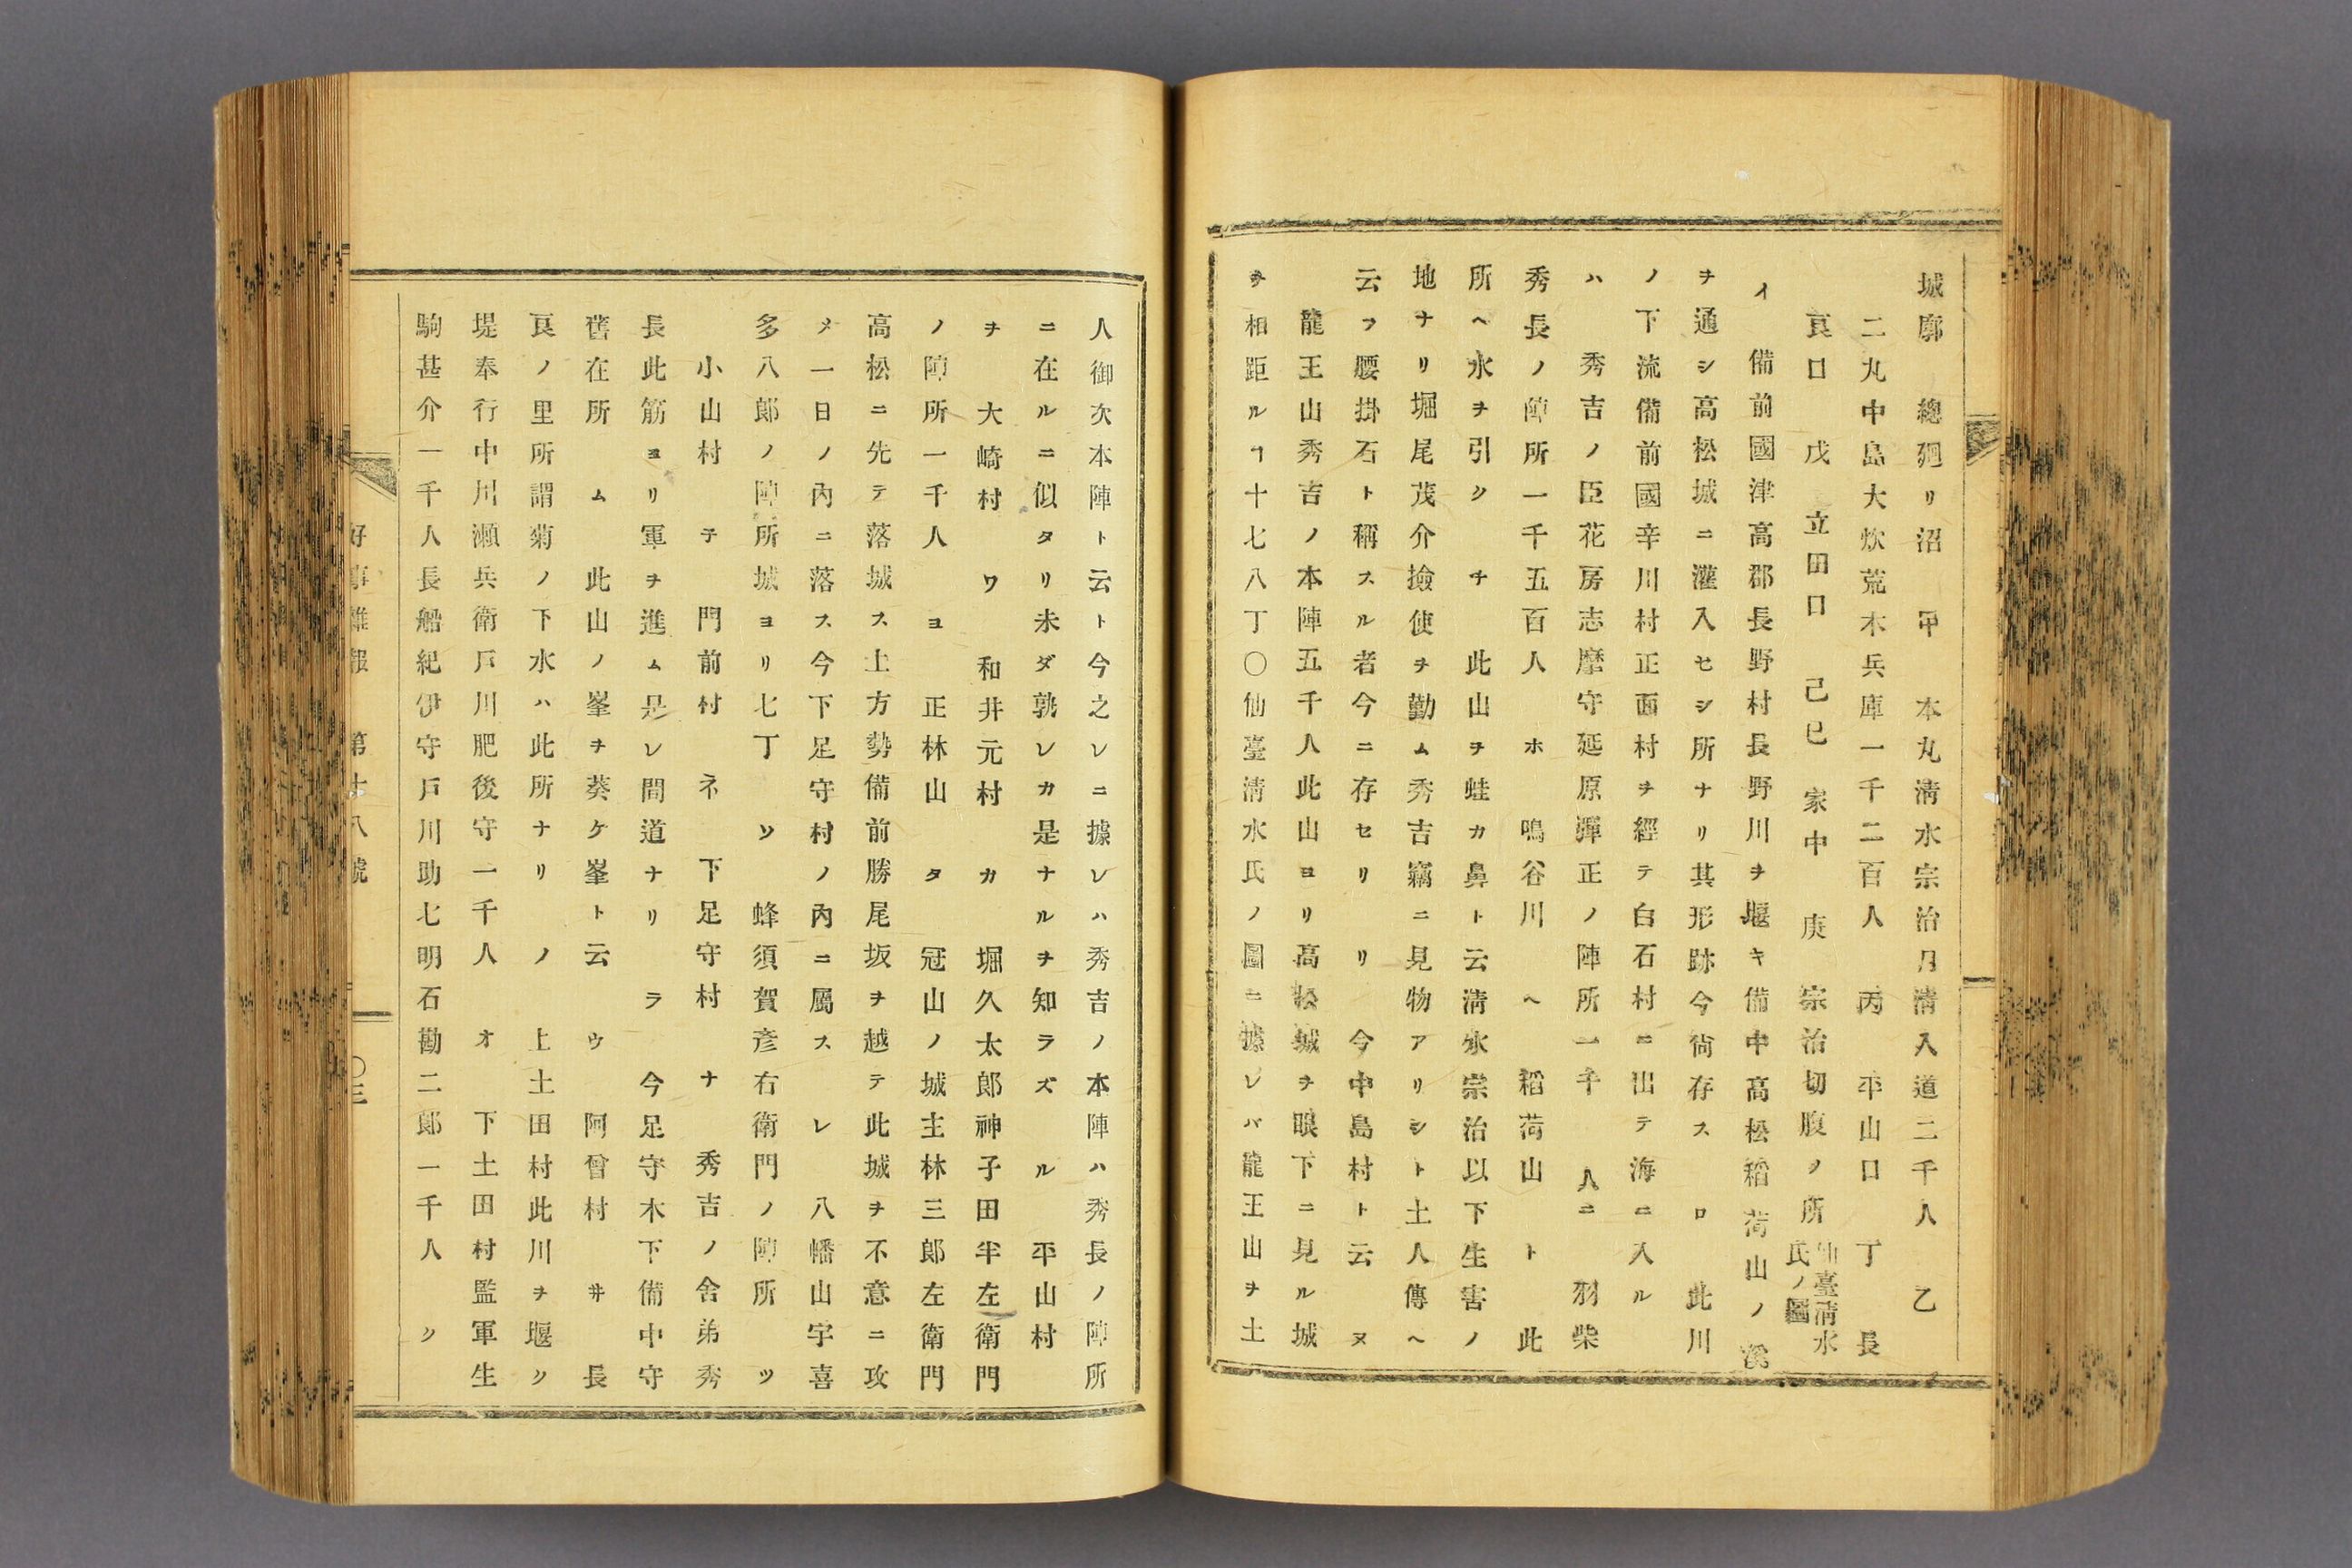 城廓　總廻リ沼　甲　本丸淸水宗治月淸入道二千人　乙
二丸中島大炊荒木兵庫一千二百人　丙　平山口　丁　長
良口　戊　立田口　己巳　家中　庚　宗治切腹ノ所 仙臺淸水氏ノ圖
イ　備前國津高郡長野村長野川ヲ堰キ備中高松稻荷山ノ溪
ヲ通シ高松城ニ灌入セシ所ナリ其形跡今尙存ス　ロ　此川
ノ下流備前國辛川村正面村ヲ經テ白石村ニ出テ海ニ入ル
ハ　秀吉ノ臣花房志摩守延原彈正ノ陣所一千人　ニ　羽柴
秀長ノ陣所一千五百人　ホ　鳴谷川　ヘ　稻荷山　ト　此
所ヘ水ヲ引ク　チ　此山ヲ蛙カ鼻ト云淸水宗治以下生害ノ
地ナリ堀尾茂介撿使ヲ勤ム秀吉竊ニ見物アリシト土人傳ヘ
云フ腰掛石ト稱スル者今ニ存セリ　リ　今中島村ト云　ヌ
龍王山秀吉ノ本陣五千人此山ヨリ高松城ヲ眼下ニ見ル城
ヲ相距ルヿ十七八丁〇仙臺淸水氏ノ圖ニ據レバ龍王山ヲ土
人御次本陣ト云ト今之レニ據レハ秀吉ノ本陣ハ秀長ノ陣所
ニ在ルニ似タリ未ダ孰レカ是ナルヲ知ラズ　ル　平山村
ヲ　大崎村　ワ　和井元村　カ　堀久太郎神子田半左衛門
ノ陣所一千人　ヨ　正林山　タ　冠山ノ城主林三郎左衛門
高松ニ先テ落城ス上方勢備前勝尾坂ヲ越テ此城ヲ不意ニ攻
メ一日ノ內ニ落ス今下足守村ノ內ニ屬ス　レ　八幡山宇喜
多八郎ノ陣所城ヨリ七丁　ソ　蜂須賀彥右衛門ノ陣所　ツ
小山村　テ　門前村　ネ　下足守村　ナ　秀吉ノ舍弟秀
長此筋ヨリ軍ヲ進ム是レ間道ナリ　ラ　今足守木下備中守
舊在所　ム　此山ノ峯ヲ葵ケ峯ト云　ウ　阿曾村　ヰ　長
良ノ里所謂菊ノ下水ハ此所ナリ　ノ　上土田村此川ヲ堰ク
堤奉行中川瀨兵衛戸川肥後守一千人　オ　下土田村監軍生
駒甚介一千人長船紀伊守戸川助七明石勘二郎一千人　ク
好事雜報　第十八號　〇三